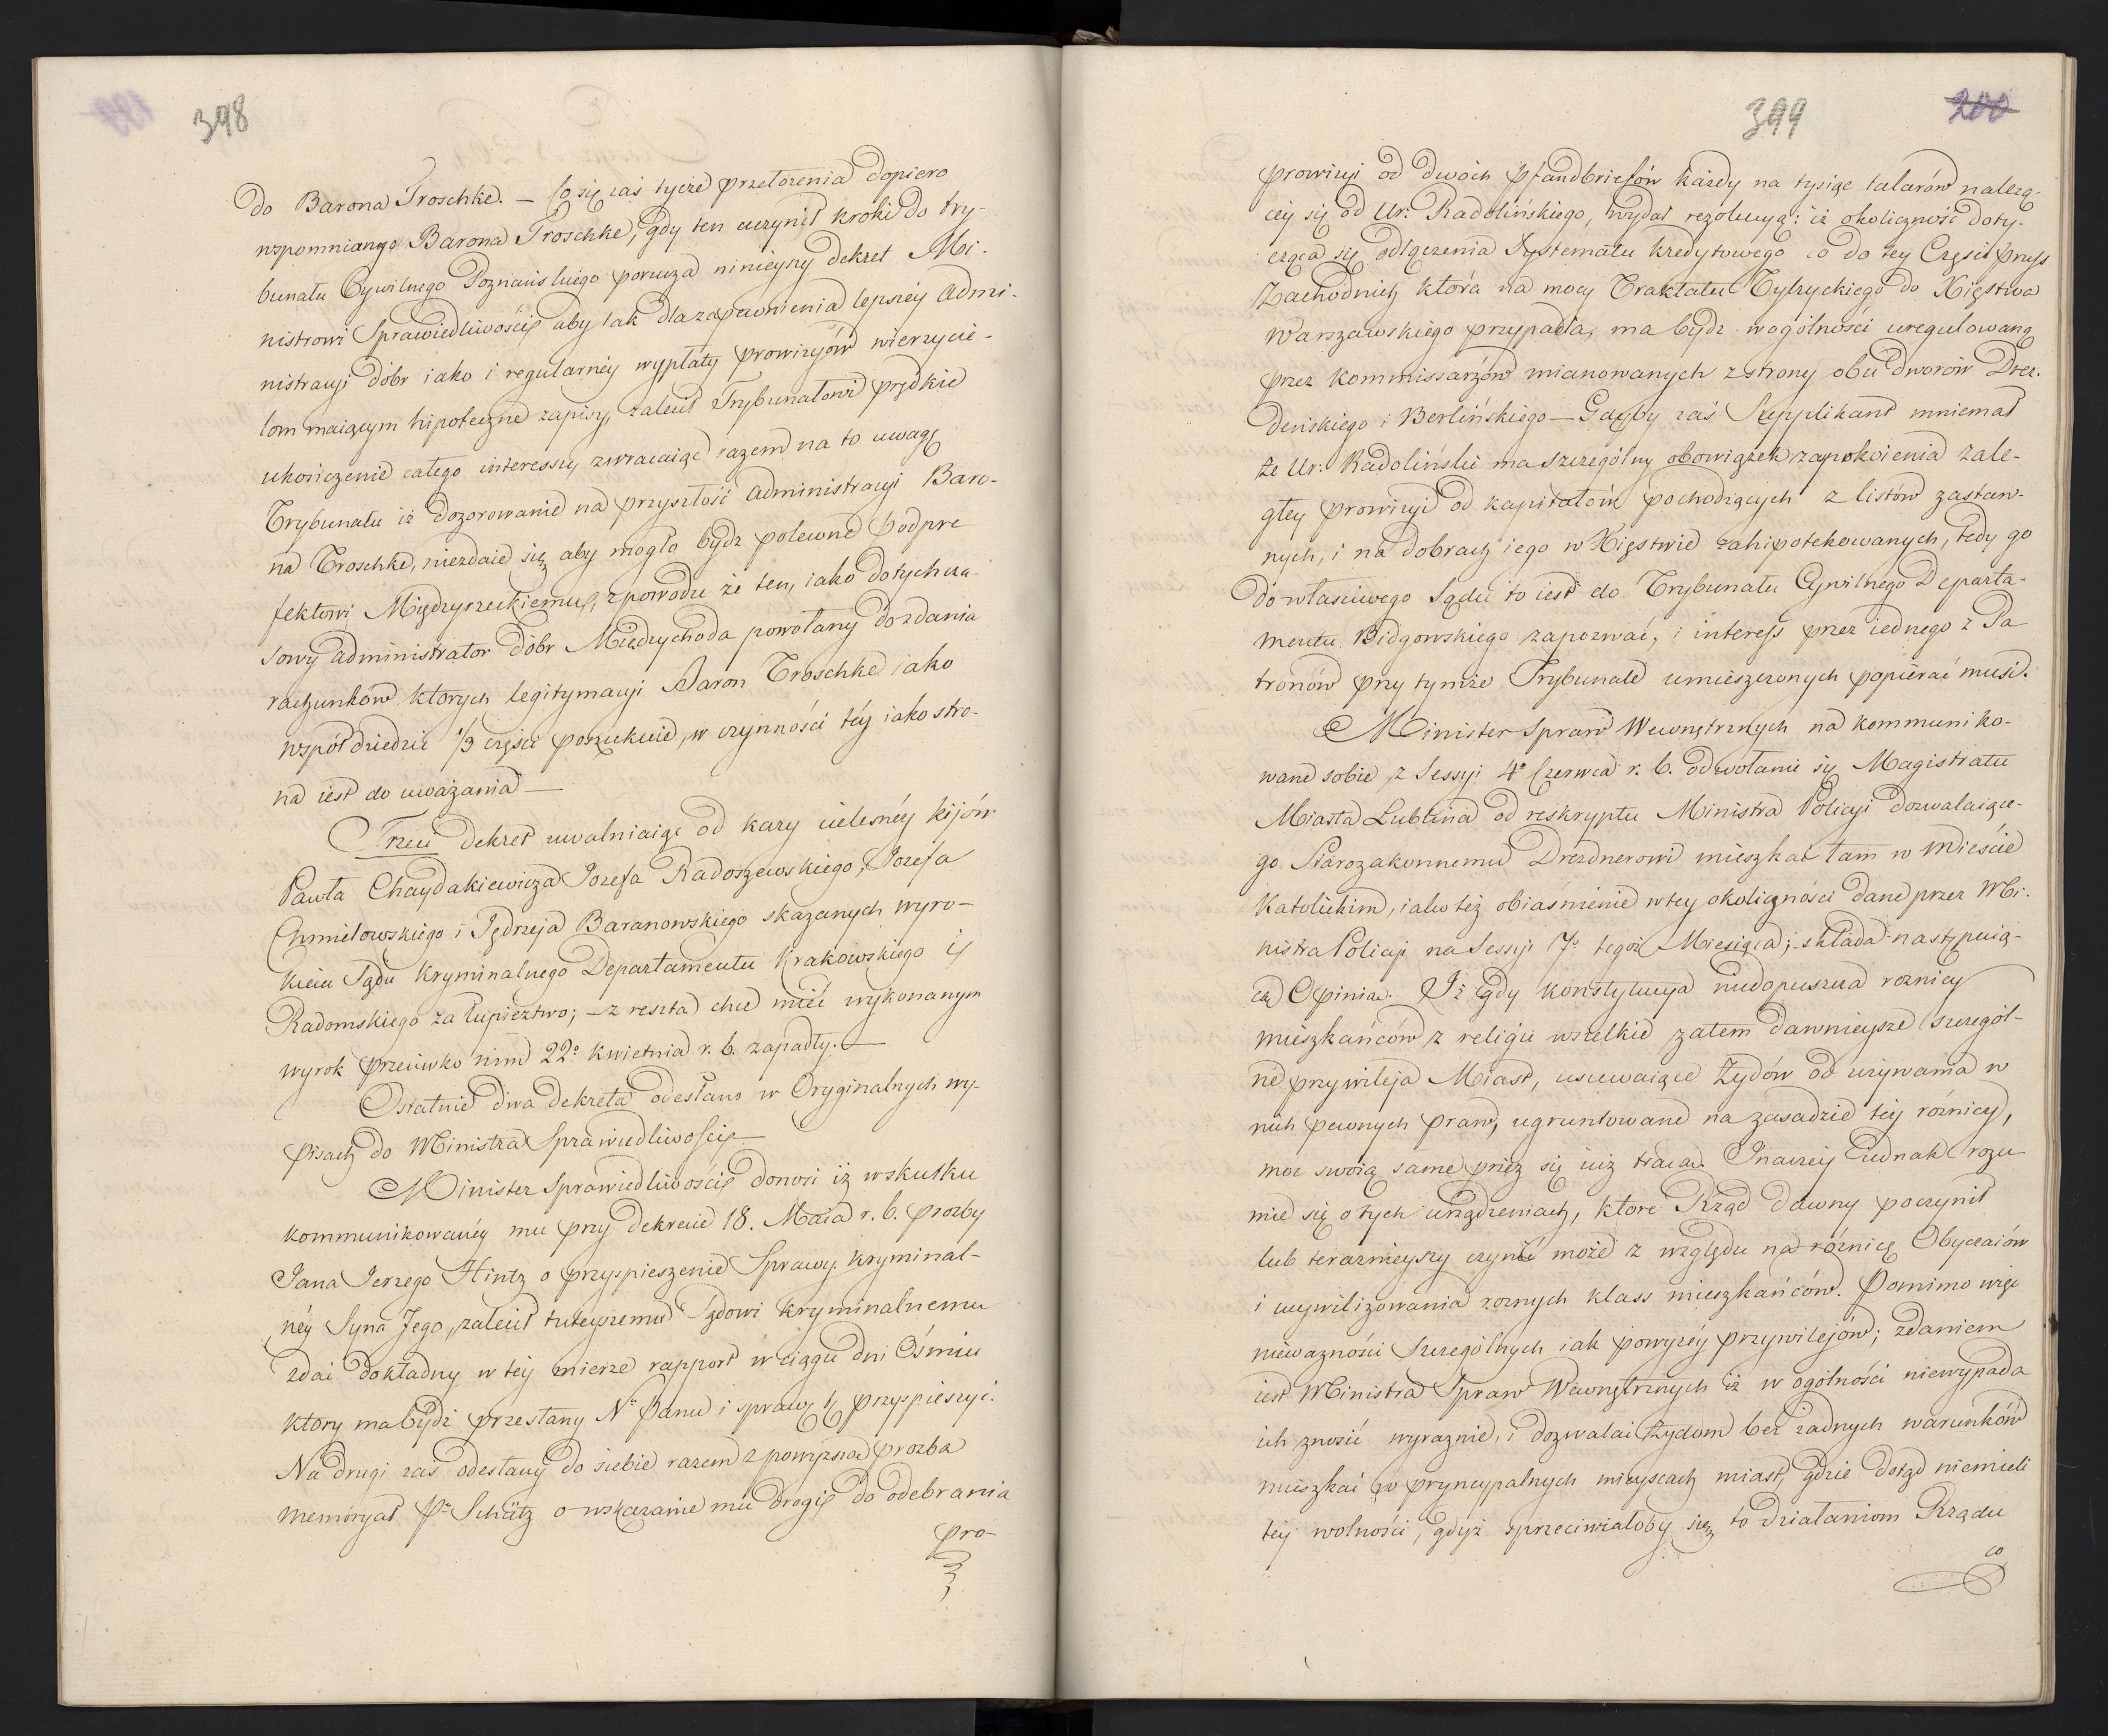 398
do Barona Troschke. — Co się zaś tycze przełożenia dopiero
wspomnianego Barona Troschke, gdy ten uczynił kroki do try-
bunału Cywilnego Poznańskiego porucza ninieyszy dekret Mi-
nistrowi Sprawiedliwości, aby tak dla zapewnienia lepszéy admi-
nistracyi dóbr iako i regularnéy wypłaty prowizyów wierzycie-
lom maiącym hipoteczne zapisy, zalecił Trybunałowi prędkie
ukończenie całego interessu, zwracaiąc razem na to uwagę
Trybunału iż dozorowanie na przyszłość administracyi Baro-
na Troschke, niezdaie się, aby mogło bydz polecone Podpre
fektowi Międzyrzeckiemu, z powodu że ten, iako dotychcza-
sowy administrator dóbr Międzychoda powołany do zdania
rachunków których legitymacyi Baron Troschke iako
współdziedzic 1/3 części poszukuie, w czynności téy iako stro-
na iest do uważania —
Trzeci dekret uwalniaiąc od kary cielesnéy kijów
Pawła Chaydakiewicza Jozefa Radoszewskiego, Jozefa
Chmielowskiego i Jędrzeja Baranowskiego skazanych wyro-
kiem Sądu Kryminalnego Departamentu Krakowskiego i
Radomskiego za łupieztwo; — z resztą chce mieć wykonanym
wyrok przeciwko nim 22º Kwietnia r. b. zapadły. —
Ostatnie dwa dekreta odesłano w Oryginalnych wy-
pisach do Ministra Sprawiedliwości —
Minister Sprawiedliwości donosi iż wskutku
kommunikowanéy mu przy dekrecie 18. Maia r. b. prozby
Jana Jerzego Hintz o przyspieszenie Sprawy kryminal-
néy Syna Jego, zalecił tuteyszemu Sądowi Kryminalnemu
zdać dokładny w téy mierze rapport w ciągu dni Ośmiu
ktory ma bydź przesłany Nº Panu i sprawę tę przyspieszyć.
Na drugi zaś odesłany do siebie razem z powyższą prozbą
memoryał Pª Schütz o wskazanie mu drogi do odebrania
pro-
399
200
prowizyi od dwoch pfandbriefów każdy na tysiąc talarów należą-
céy się od Ur: Radolińskiego, wydał rezolucyą: iż okoliczność doty-
cząca się odłączenia Systematu kredytowego co do tey Części Pruss
Zachodnich która na mocy Traktatu Tylżyckiego do Xięstwa
Warszawskiego przypadła, ma bydz w ogólności uregulowaną
przez kommissarzów mianowanych z strony obu dworów Drez-
deńskiego i Berlińskiego — Gdyby zaś Supplikant mniemał
że Ur: Radoliński ma szczególny obowiązek zapokoienia zale-
głey prowizyi od kapitałów pochodzących z listów zastaw-
nych, i na dobrach iego w Xięstwie zahipotekowanych, tedy go
do właściwego Sądu to iest do Trybunału Cywilnego Departa-
mentu Bidgowskiego zapozwać, i interess przez iednego z Pa
tronów przy tymże Trybunale umieszczonych popierać musi.
Minister Spraw Wewnętrznych na kommuniko-
wane sobie z Sessyi 4º Czerwca r. b. odwołanie się Magistratu
Miasta Lublina od reskryptu Ministra Policyi dozwalaiące-
go Starozakonnemu Drezdnerowi mieszkać tam w Mieście
Katolickim, iako też obiaśnienie w tey okoliczności dane przez Mi-
nistra Policyi na Sessyi 7º tegoż Miesiąca; składa następuią-
cą Opinią. Iż gdy Konstytucya niedopuszcza roznicy
mieszkańców z religii wszelkie zatem dawnieysze szczegól-
ne przywileja Miast, usuwaiące Żydów od używania w
nich pewnych praw, ugruntowane na zasadzie téy różnicy,
moc swoią same przez się iuż tracą. Inaczéy iednak rozu
mie się o tych urządzeniach, ktore Rząd dawny poczynił
lub teraźnieyszy czynić może z względu na różnicę Obyczaiów
i ucywilizowania roznych klass mieszkańców. Pomimo więc
nieważności szczególnych iak powyżéy przywilejów; zdaniem
iest Ministra Spraw Wewnętrznych iż w ogólności niewypada
ich znosić wyraznie, i dozwalać Żydom bez żadnych warunków
mieszkać w pryncypalnych mieyscach miast, gdzie dotąd niemieli
téy wolności, gdyż sprzeciwiałoby się to działaniom Rządu
co